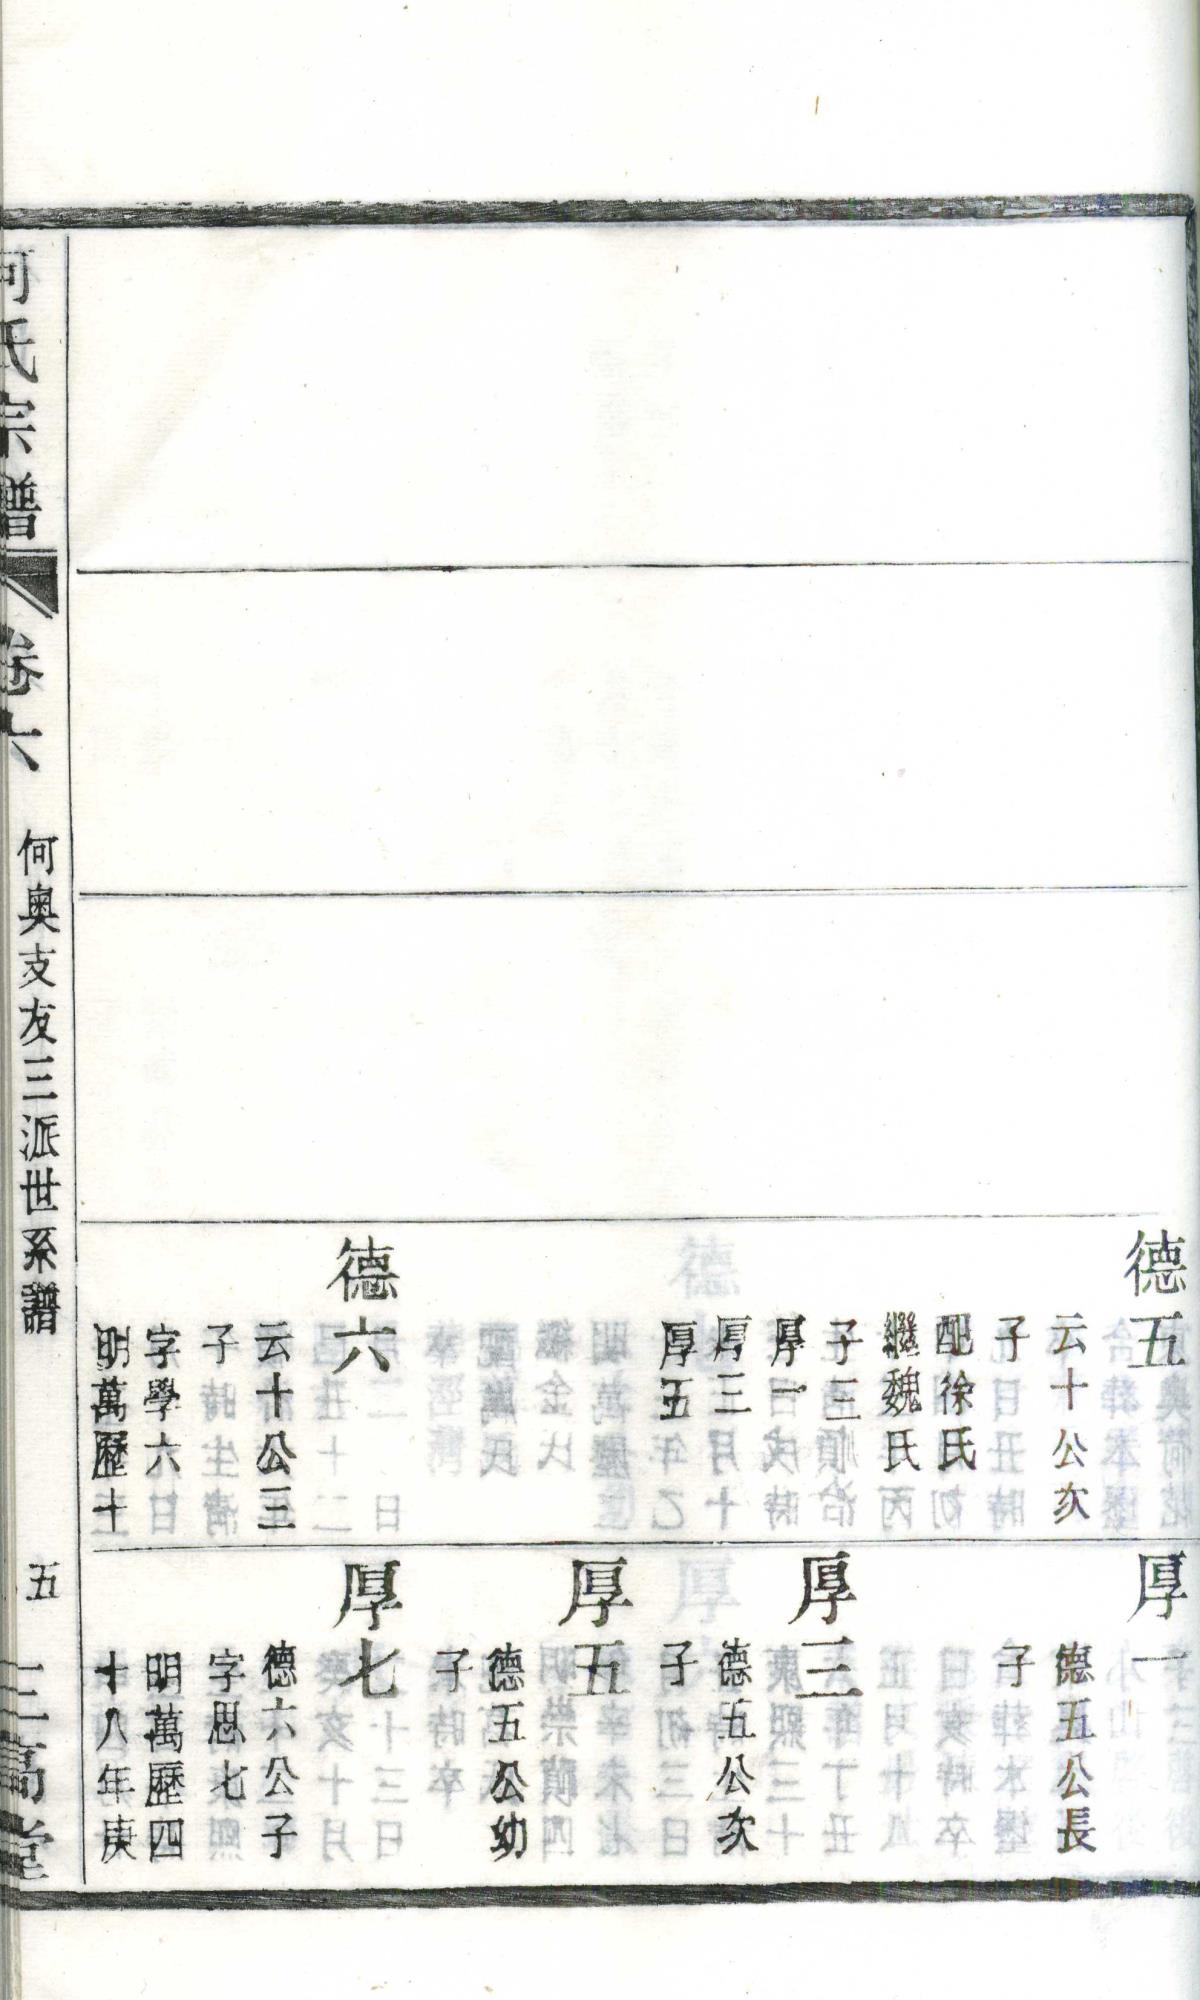 德五
云十公次
子
配徐氏
繼魏氏
子三
厚一
厚三
厚五
德六
云十公三
子
字學六
明萬歷十
厚一
德五公長
子
厚三
德五公次
子
厚五
德五公幼
子
厚七
德六公子
字思七
明萬歷四
十八年庚
何氏宗譜
卷六
何奧支友三派世系譜
五
三高堂